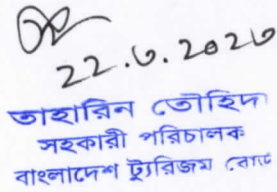 ২২.৩.২০২৩
তাহারিন তৌহিদা
সহকারী পরিচালক
বাংলাদেশ ট্যুরিজম বোর্ড